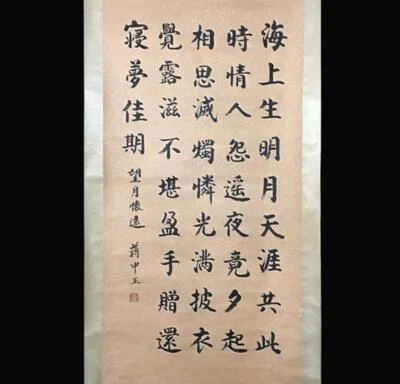 海上生明月天涯共此
時情人怨遥夜竟夕起
相思滅燭憐光满披衣
覺露滋不堪盈手贈還
寢夢佳期
望月懷遠 蒋中